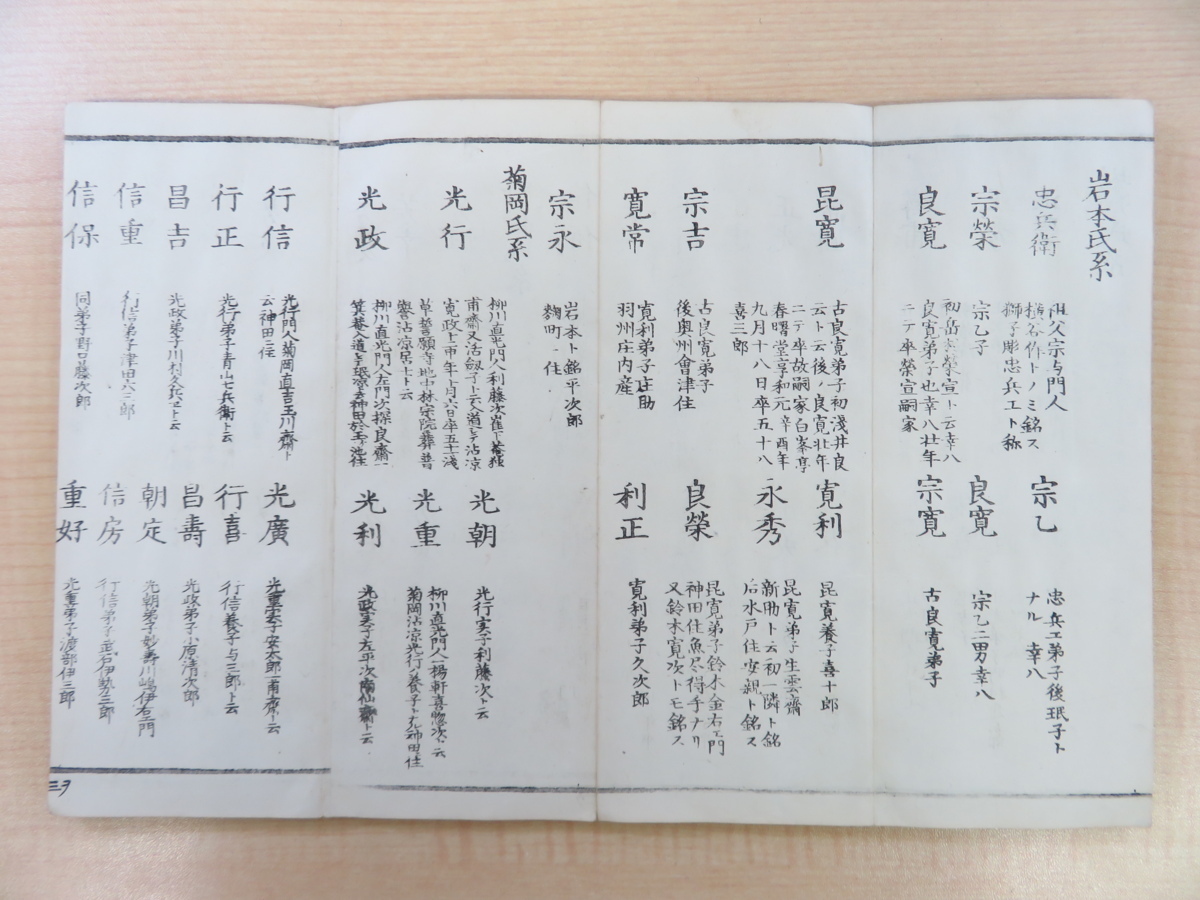 岩本氏系
忠兵衛
祖父宗与門人
横谷作トノミ銘ス
獅子彫忠兵エト称
宗乙
忠兵エ弟子後珉子ト
ナル 幸八
宗榮
宗乙子
良寛
宗乙二男幸八
良寛
初岳 榮宣ト云幸八
良寛弟子也幸八壮年
ニテ卒榮宣嗣家
宗寛
古良寛弟子
昆寛
古良寛弟子初淺井良
云ト云後ノ良寛壮年
ニテ卒故嗣家白峯亭
春曙堂享和元辛酉年
九月十八日卒五十八
喜三郎
寛利
昆寛養子喜十郎
永秀
昆寛弟子生雲齋
新助ト云初一隣ト銘
后水戸住安親ト銘ス
宗吉
古良寛弟子
後奥州會津住
良榮
昆寛弟子鈴木金右エ門
神田住魚尽得手ナリ
又鈴木寛次トモ銘ス
寛常
寛利弟子庄助
羽州庄内産
利正
寛利弟子久次郎
宗永
岩本ト銘平次郎
麹町ニ住
菊岡氏系
光行
柳川直光門人利藤次崔下菴
甫齋又活劔子ト云入道シテ沾凉
寛政十二 年 月六日卒五十一浅
草誓願寺地中林宗院葬 普
譽沾凉居士ト云
光朝
光行実子利藤次ト云
光政
柳川直光門人左門次探良齋
箕菴入道シテ珉 云神田於玉ヶ池住
光重
柳川直光門人一楊軒喜惣次ト云
菊岡沾凉光行ノ養子トナル神田住
光利
光政実子左平次南仙齋ト云
行信
光行門人菊岡直吉玉川齋ト
云神田ニ住
光廣
光重実子安太郎一甫齋ト云
行正
光行弟子青山七兵衛ト云
行喜
行信養子与三郎ト云
昌吉
光政弟子川村久兵エト云
昌壽
光政弟子小原清次郎
信重
行信弟子津田六三郎
朝定
光朝弟子妙壽川嶋伊右エ門
信保
同弟子野口藤次郎
信房
行信弟子武石伊勢三郎
重好
光重弟子渡部伊三郎
三ヲ